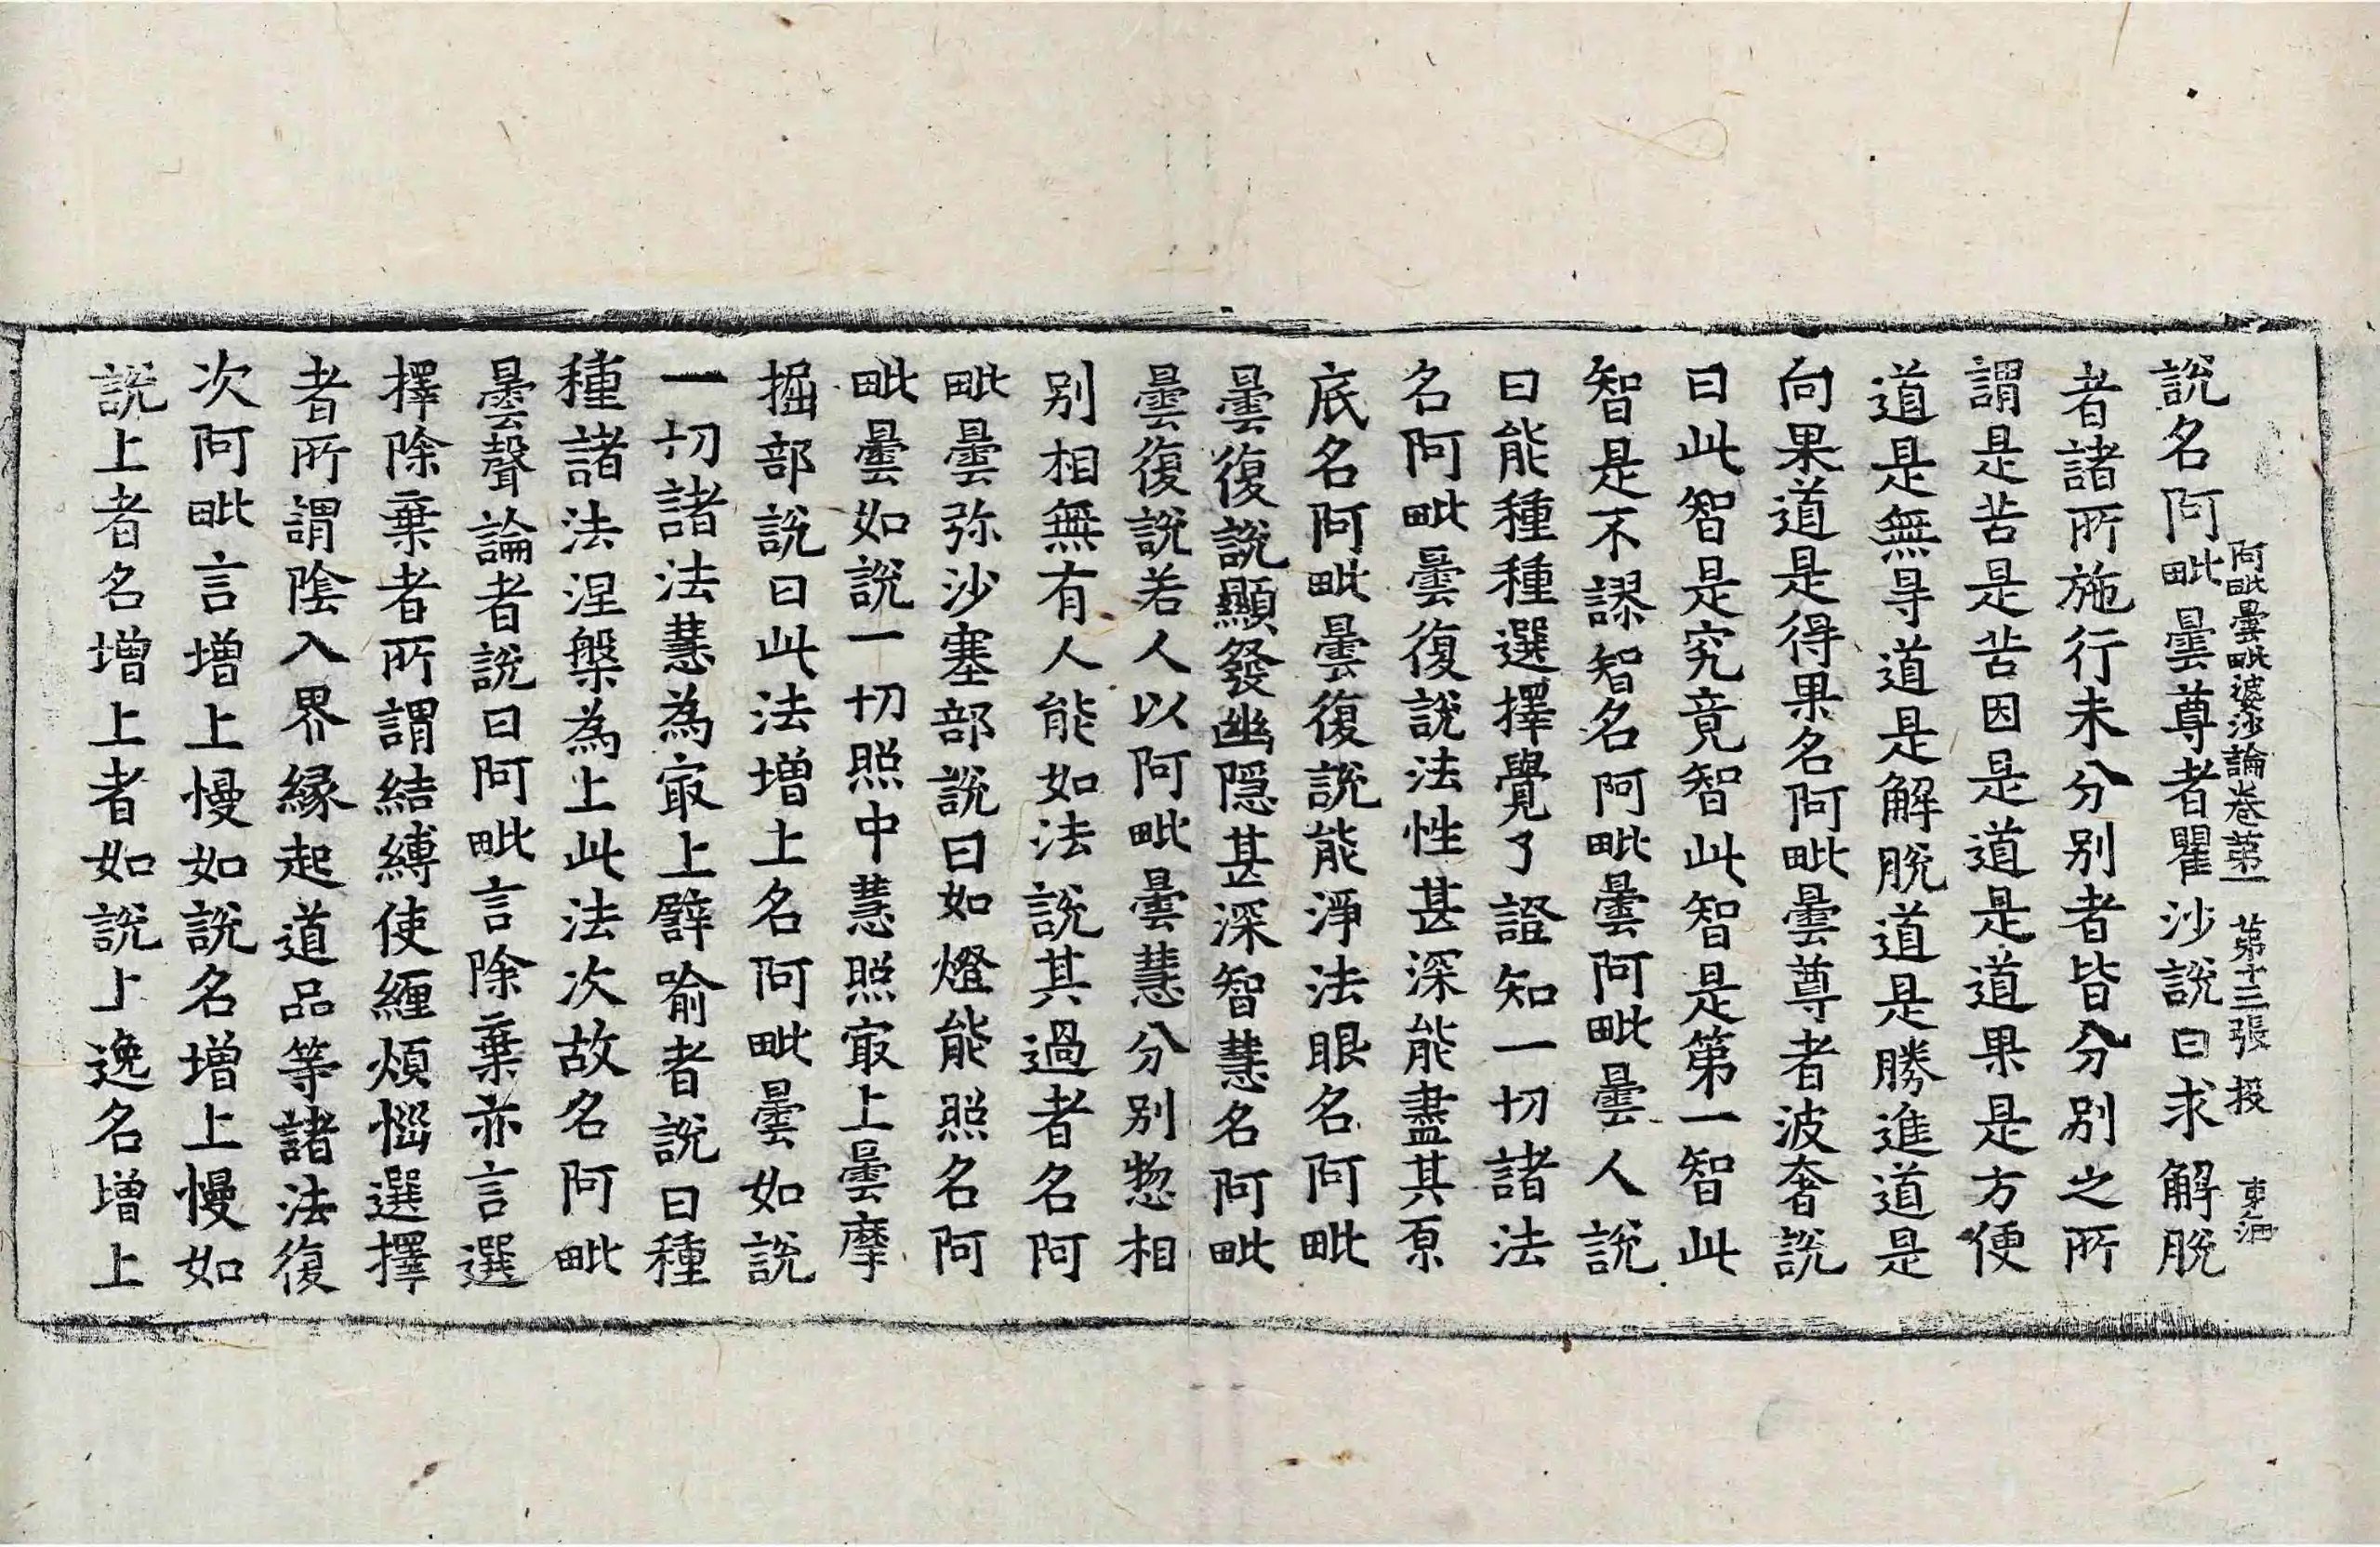 說名阿毗曇尊者瞿沙說曰求解脫
阿毗曇毗婆沙論卷苐一 苐十三張 投
者諸所施行未分別者皆分別之所
謂是苦是苦因是道是道果是方便
道是無㝵道是解脫道是勝進道是
向果道是得果名阿毗曇尊者波奢說
曰此智是究竟智此智是第一智此
智是不謬智名阿毗曇阿毗曇人說
曰能種種選擇覺了證知一切諸法
名阿毗曇復說法性甚深能盡其原
底名阿毗曇復說能淨法眼名阿毗
曇復說顯發幽隱甚深智慧名阿毗
曇復說若人以阿毗曇慧分別惣相
別相無有人能如法說其過者名阿
毗曇弥沙塞部說曰如燈能照名阿
毗曇如說一切照中慧照㝡上曇摩
掘部說曰此法增上名阿毗曇如說
一切諸法慧為㝡上譬喻者說曰種
種諸法涅槃為上此法次故名阿毗
曇聲論者說曰阿毗言除棄亦言選
擇除棄者所謂結縛使纏煩惱選擇
者所謂陰入界緣起道品等諸法復
次阿毗言增上慢如說名增上慢如
說上者名增上者如說上逸名增上